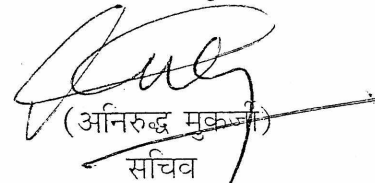 (अनिरुद्ध मुकर्जी)
सचिव